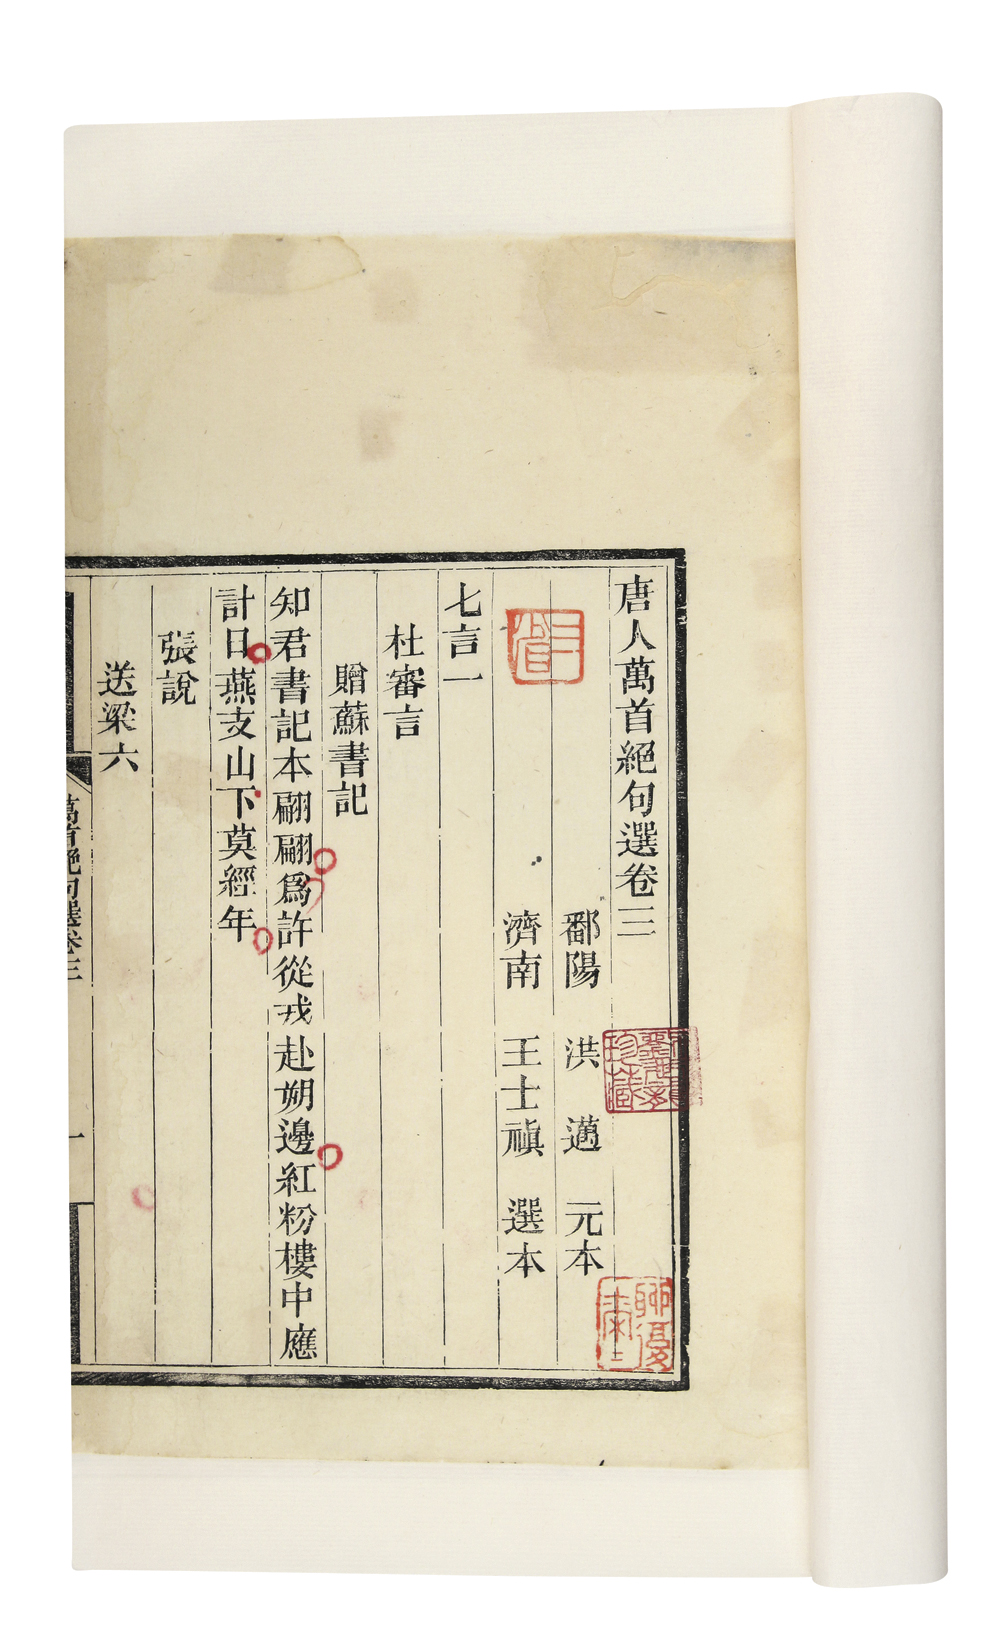 唐人萬首絕句選卷三
鄱陽 洪邁 元本
濟南 王士禛 選本
七言一
杜審言
贈蘇書記
知君書記本翩翩為許從戎赴朔邊紅粉樓中應
計日燕支山下莫經年
張說
送梁六
萬首絕句選卷三
一